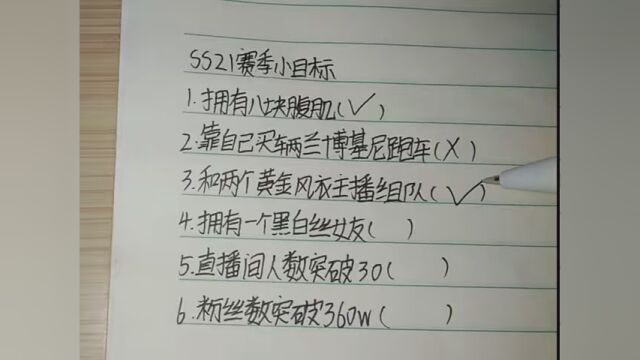 SS21赛季小目标
1.拥有八块腹肌(✓)
2.靠自己买辆兰博基尼跑车(X)
3.和两个黄金风衣主播组队(✓)
4.拥有一个黑白丝女友( )
5.直播间人数突破30( )
6.粉丝数突破360w( )